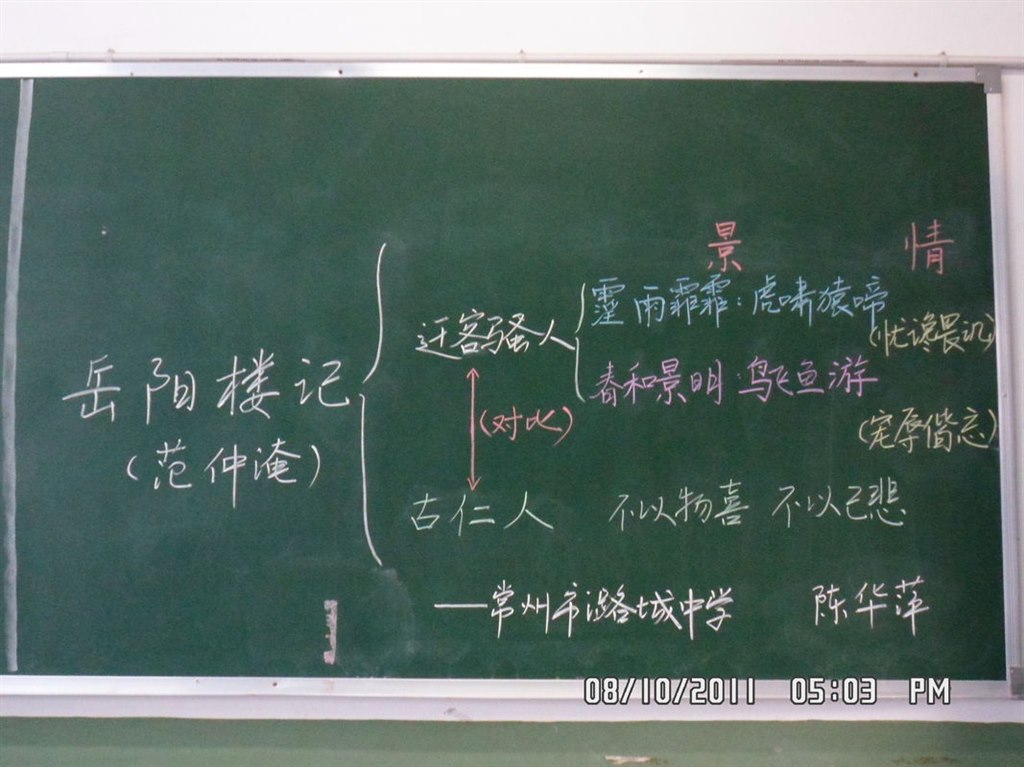 景 情
霪雨霏霏:虎啸猿啼
迁客骚人
(忧谗畏讥)
春和景明 鸟飞鱼游
岳阳楼记
(对比)
(宠辱偕忘)
(范仲淹)
古仁人 不以物喜 不以己悲
——常州市潞城中学 陈华萍
08/10/2011 05:03 PM